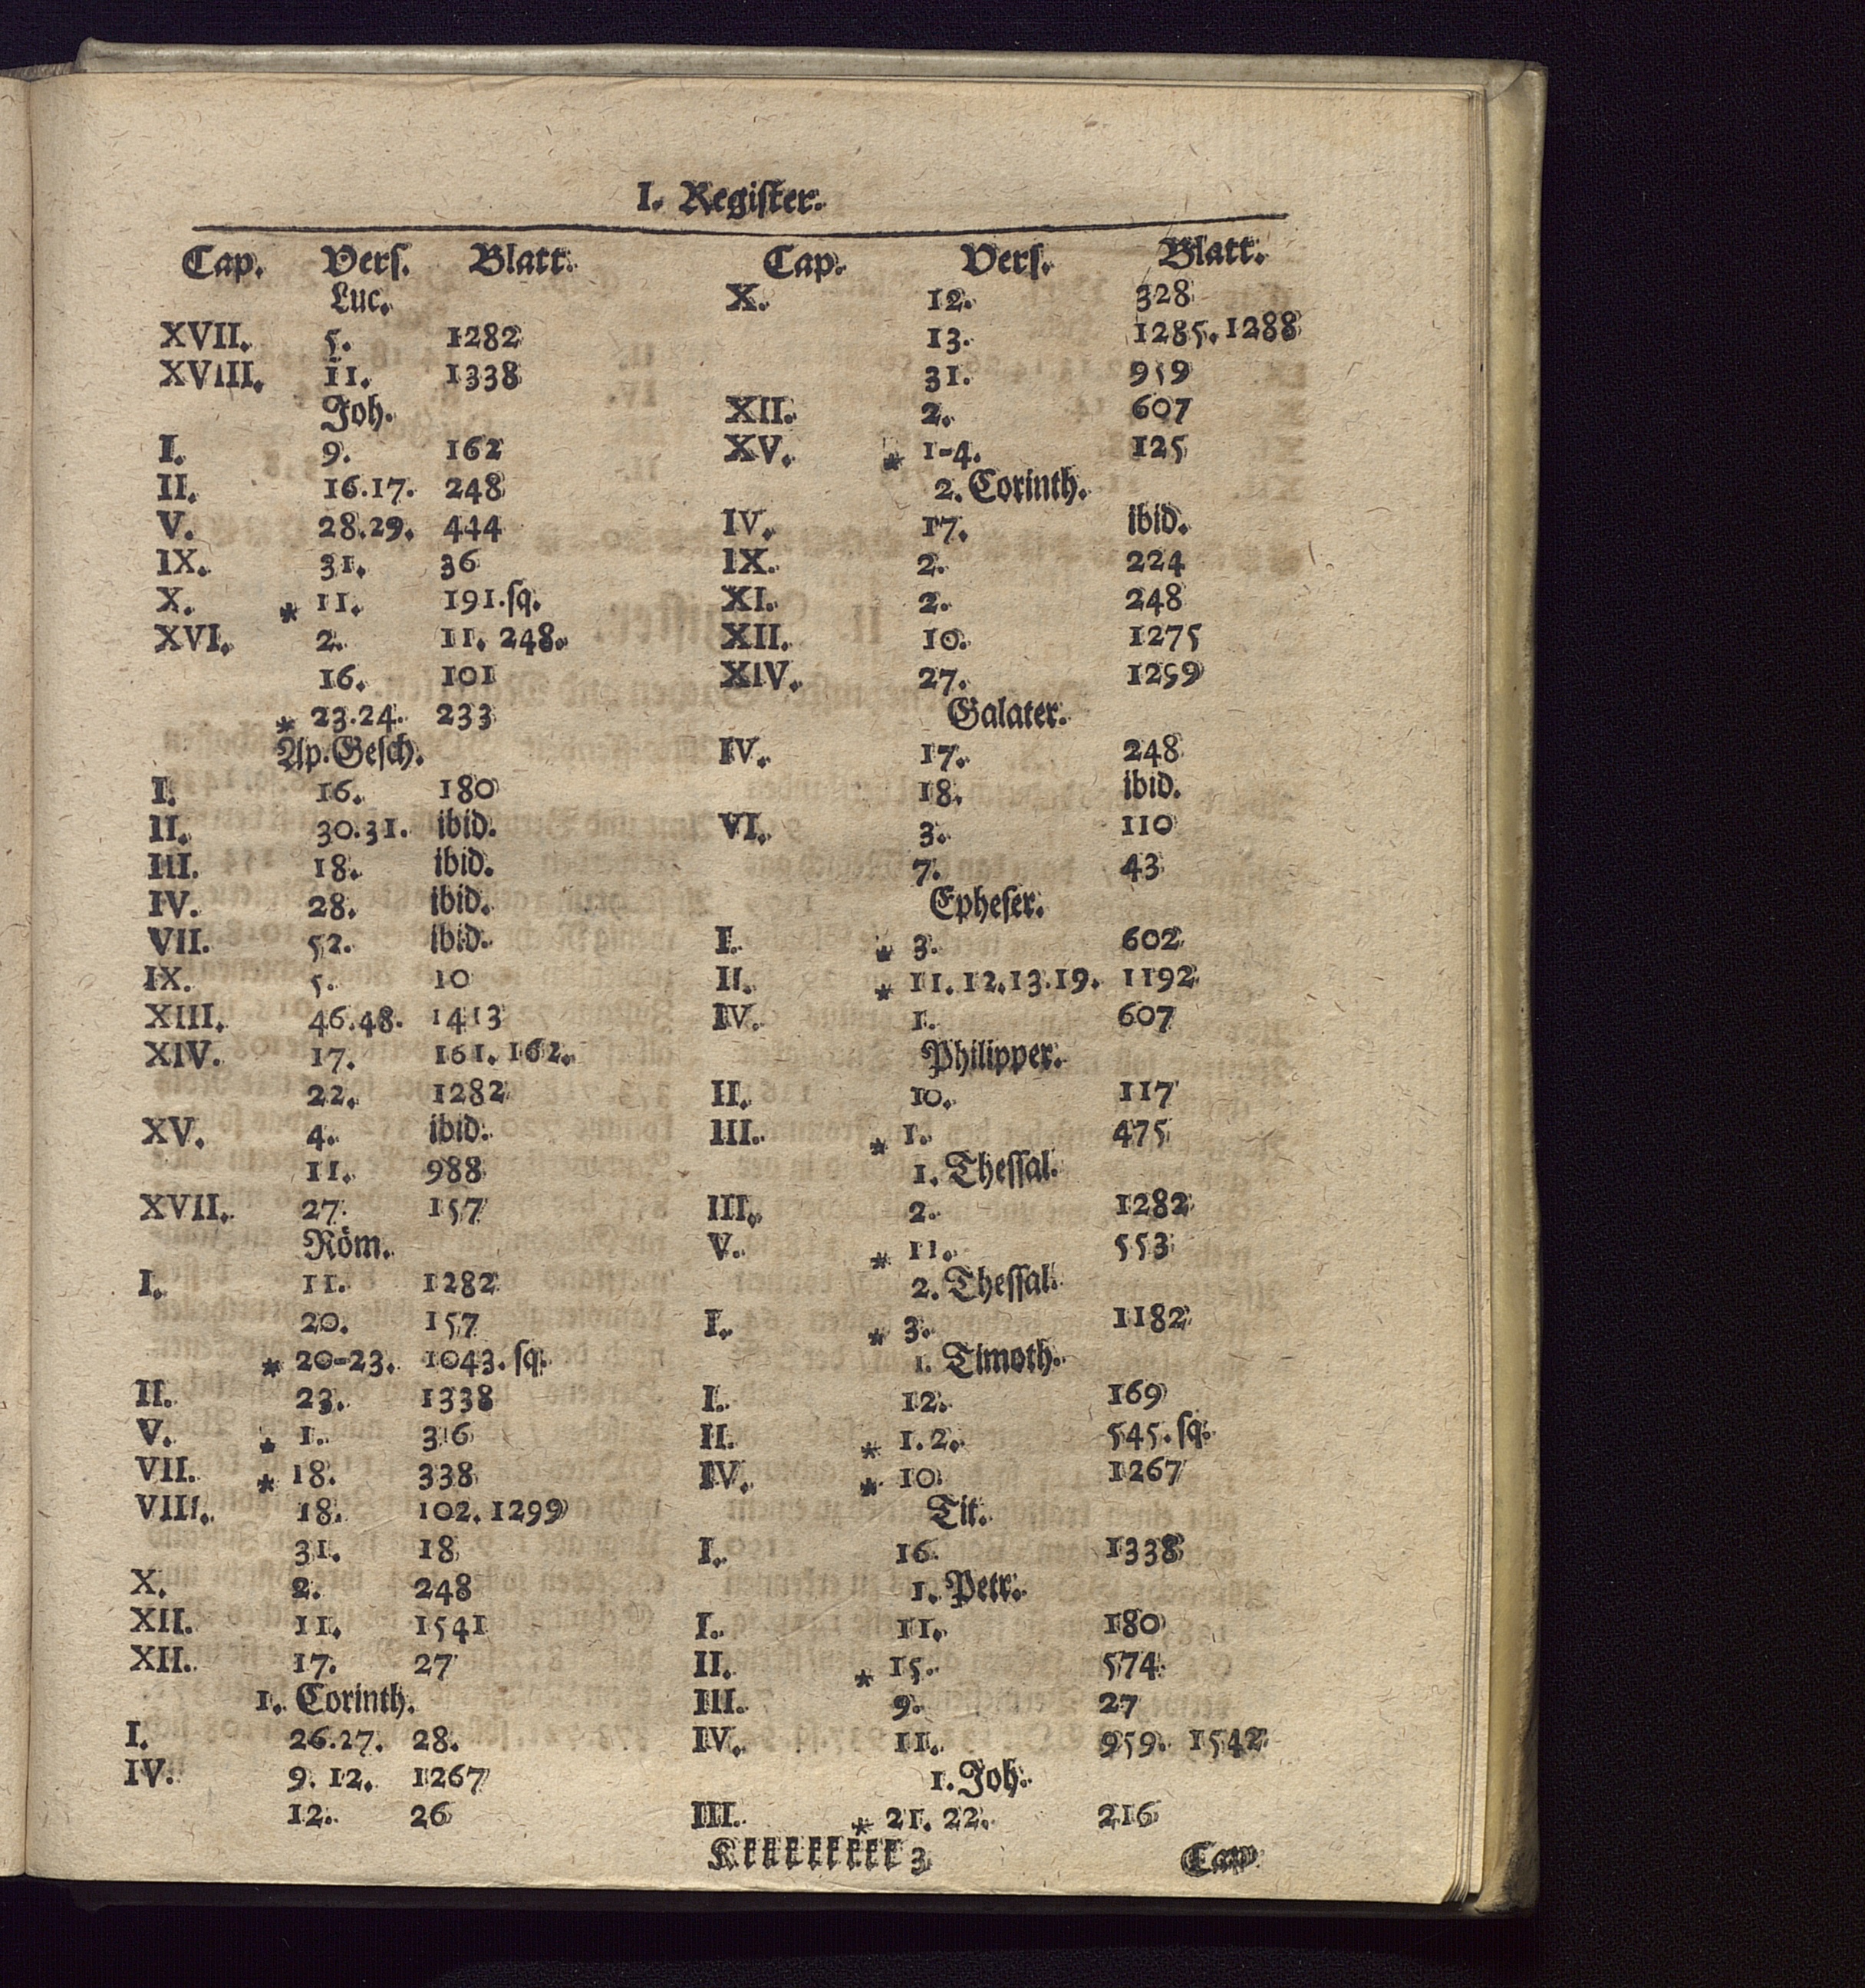 I. Regiſter.
Cap. Verſ. Blatt.
Luc.
XVII. 5. 1282
XVIII. 11. 1338
Joh.
I. 9. 162
II. 16.17. 248
V. 28.29. 444
IX. 31. 36
X. * 11. 191.ſq.
XVI. 2. 11. 248.
16. 101
* 23.24. 233
Ap.Geſch.
I. 16. 180
II. 30.31. ibid.
III. 18. ibid.
IV. 28. ibid.
VII. 52. ibid.
IX. 5. 10
XIII. 46.48. 1413
XIV. 17. 161. 162.
22. 1282
XV. 4. ibid.
11. 988
XVII. 27. 157
Röm.
I. 11. 1282
20. 157
* 20-23. 1043. ſq.
II. 23. 1338
V. * 1. 316
VII. * 18. 338
VIII. 18. 102. 1299
31. 18
X. 2. 248
XII. 11. 1541
XII. 17. 27
1. Corinth.
I. 26.27. 28.
IV. 9. 12. 1267
12. 26
Cap. Verſ. Blatt.
X. 12. 328
13. 1285. 1288
31. 959
XII. 2. 607
XV. * 1-4. 125
2. Corinth.
IV. 17. ibid.
IX. 2. 224
XI. 2. 248
XII. 10. 1275
XIV. 27. 1259
Galater.
IV. 17. 248
18. ibid.
VI. 3. 110
7. 43
Epheſer.
I. * 3. 602
II. * 11. 12.13.19. 1192
IV. 1. 607
Philipper.
II. 10. 117
III. * 1. 475
1. Theſſal.
III. 2. 1282
V. * 11. 553
2. Theſſal.
I. * 3. 1182
1. Timoth.
I. 12. 169
II. * 1. 2. 545. ſq.
IV. * 10. 1267
Tit.
I. 16. 1338
1. Petr.
I. 11. 180
II. * 15. 574
III. 9. 27
IV. 11. 959. 1542
1. Joh.
III. * 21. 22. 216
Kkkkkkkkk 3 Cap